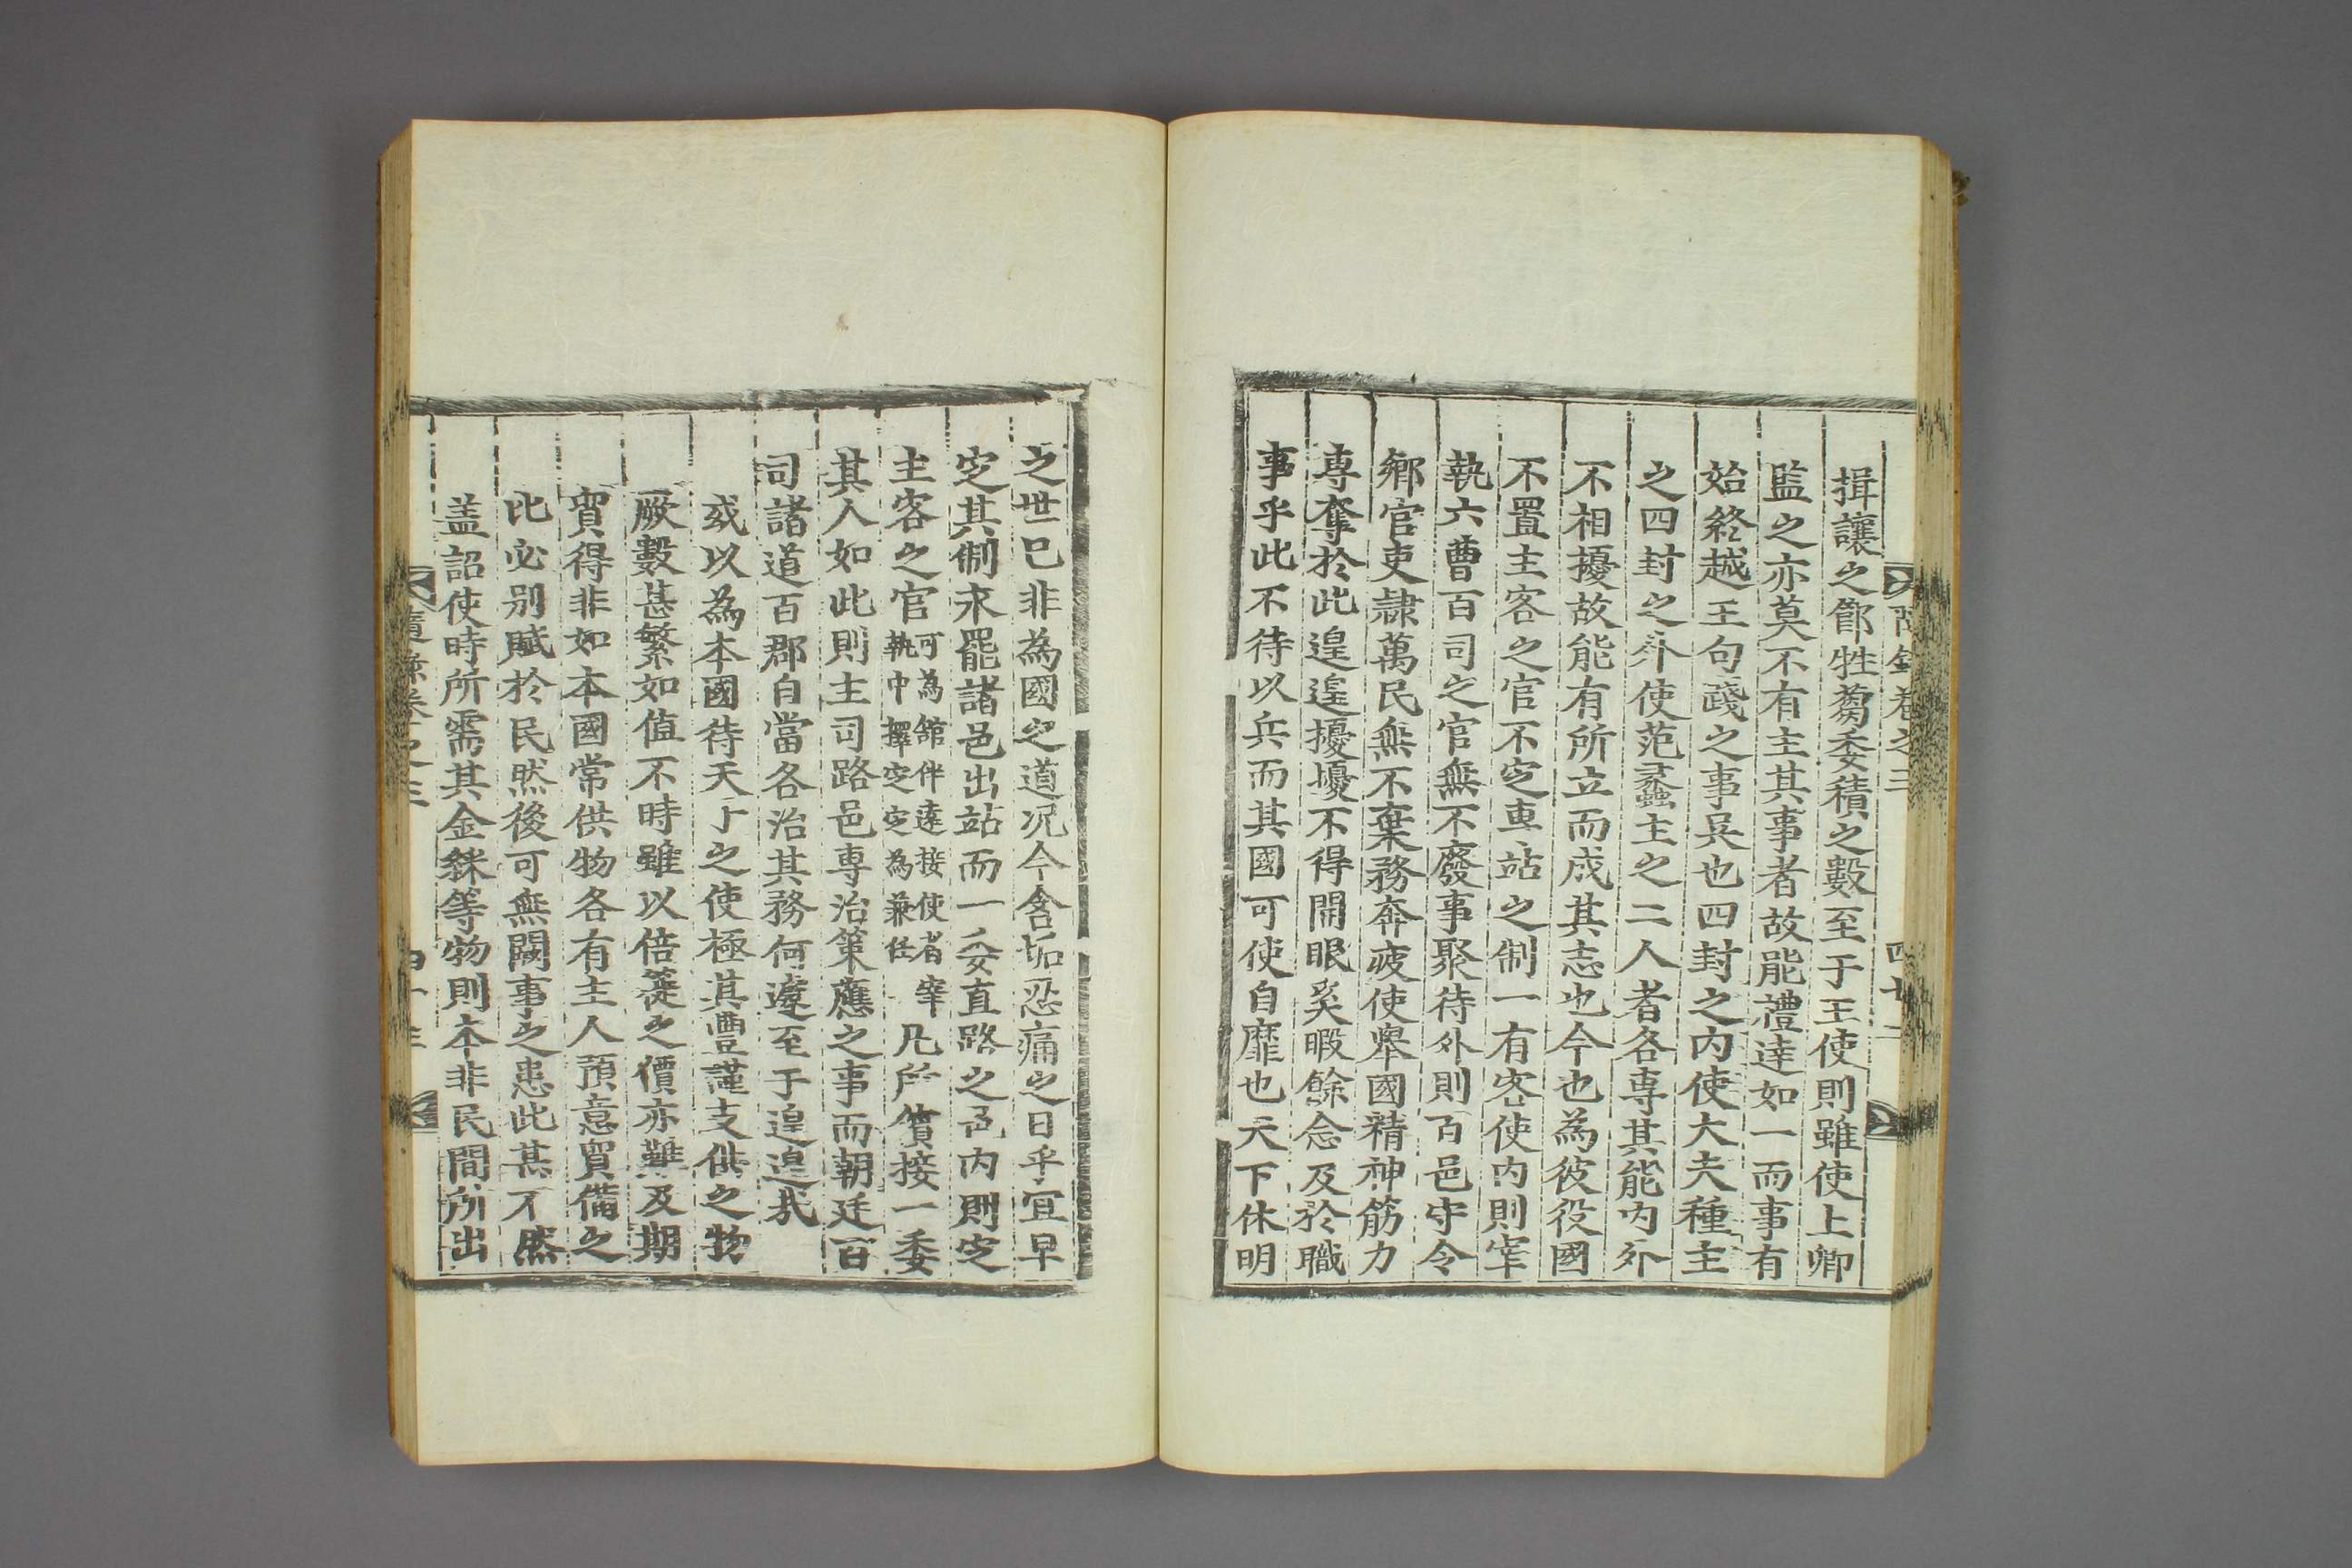 揖讓之節牲芻委積之數至于王使則雖使上卿
監之亦莫不有主其事者故能禮達如一而事有
始終越王句踐之事吳也四封之內使大夫種主
之四封之外使范蠡主之二人者各專其能內外
不相擾故能有所立而成其志也今也為彼役國
不置主客之官不定專站之制一有客使內則宰
執六曹百司之官無不廢事聚待外則百邑守令
鄕官吏隷萬民無不棄務奔疲使舉國精神筋力
專奪於此遑遑擾擾不得開眼奚暇餘念及於職
事乎此不待以兵而其國可使自靡也天下休明
之世已非為國之道况今含垢忍痛之日乎宜早
定其制永罷諸邑出站而一委直路之邑內則定
主客之官可為舘伴遠接使者宰執中擇定定為兼任凡所儐接一委
其人如此則主司路邑專治策應之事而朝廷百
司諸道百郡自當各治其務何遽至于遑遑哉
或以為本國待天子之使極其豐謹支供之物
厥數甚繁如値不時雖以倍蓰之價亦難及期
貿得非如本國常供物各有主人預意貿備之
比必別賦於民然後可無闕事之患此甚不然
盖詔使時所需其金銀等物則本非民間所出